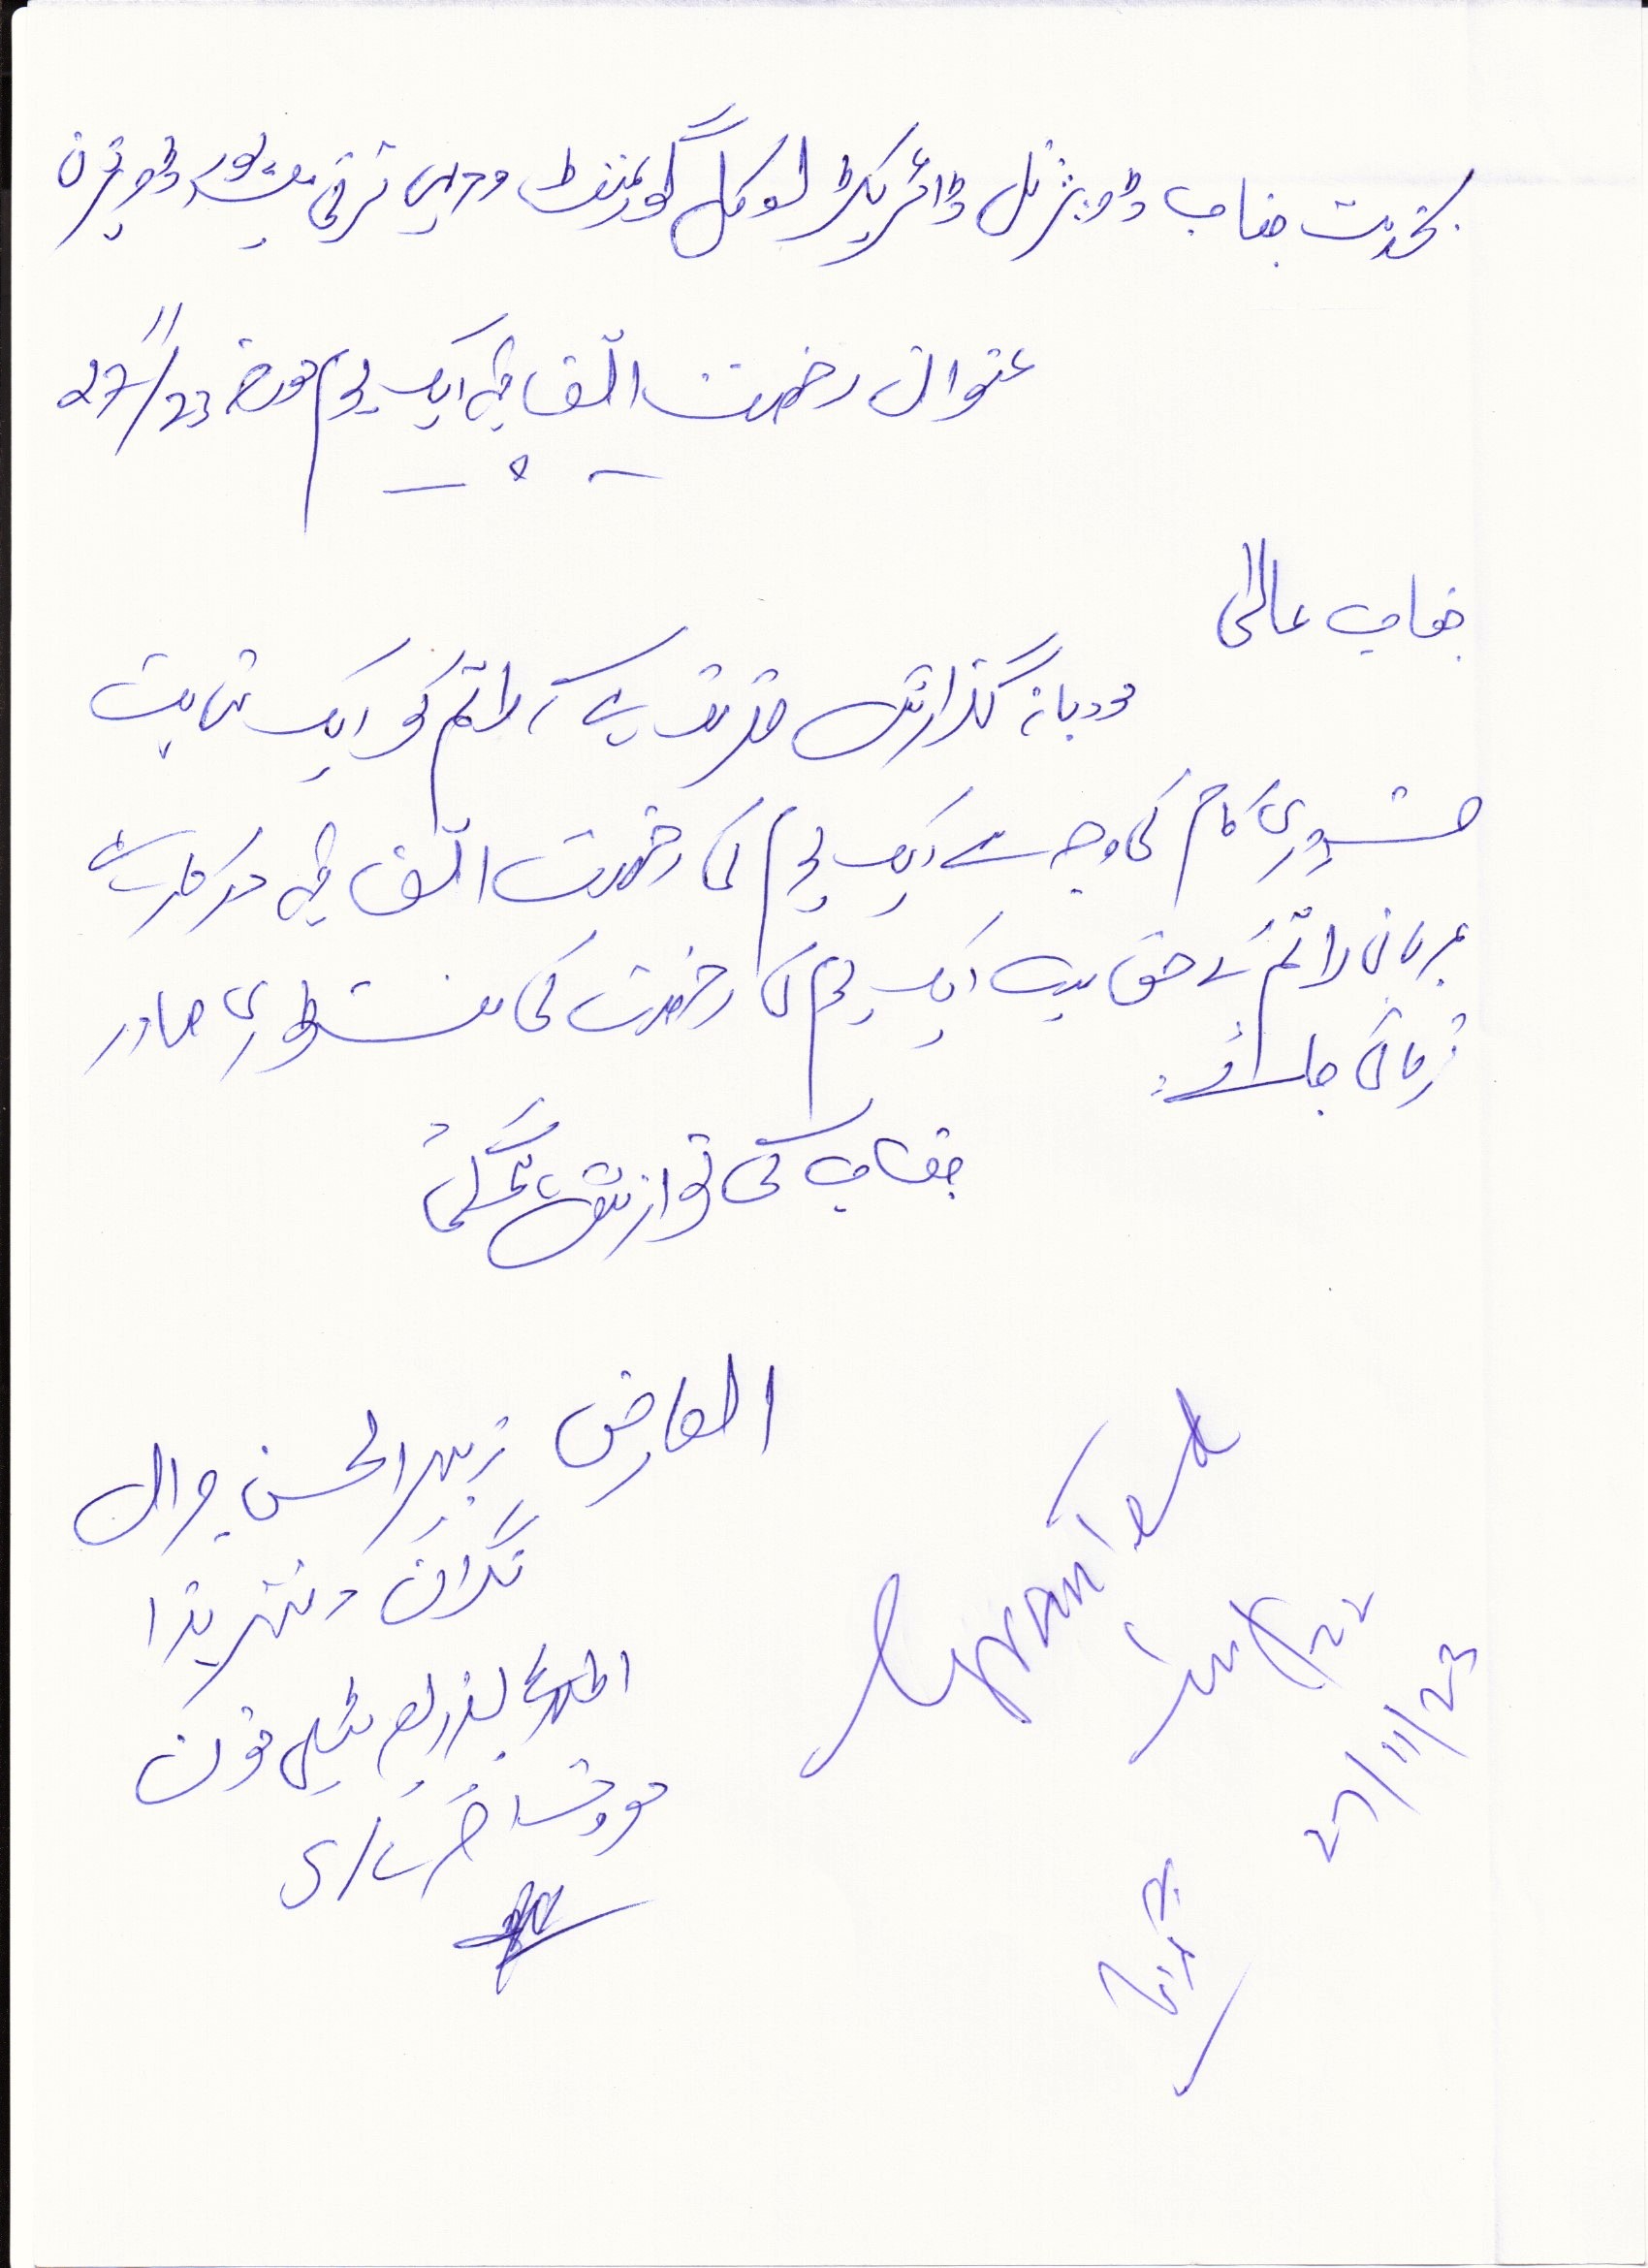 بخدمت جناب ڈویژنل ڈائریکٹر لوکل گورنمنٹ ودیہی ترقی میرپور ڈویژن
عنوان رخصت اتفاقیہ ایک یوم مورخہ 27/11/23
جناب عالی
مودبانہ گذارش خدمت ہے کہ راقم کو ایک نہایت
ضروری کام کی وجہ سے ایک یوم کی رخصت اتفاقیہ درکار ہے
مہربانی راقم کے حق میں ایک یوم کی رخصت کی منظوری صادر
فرمائی جائے۔
جناب کی نوازش ہوگی
العارض زبیر الحسن جرال
نگران دفتر ہذا
اطلاع بذریعہ ٹیلی فون
Granted
27/11/23